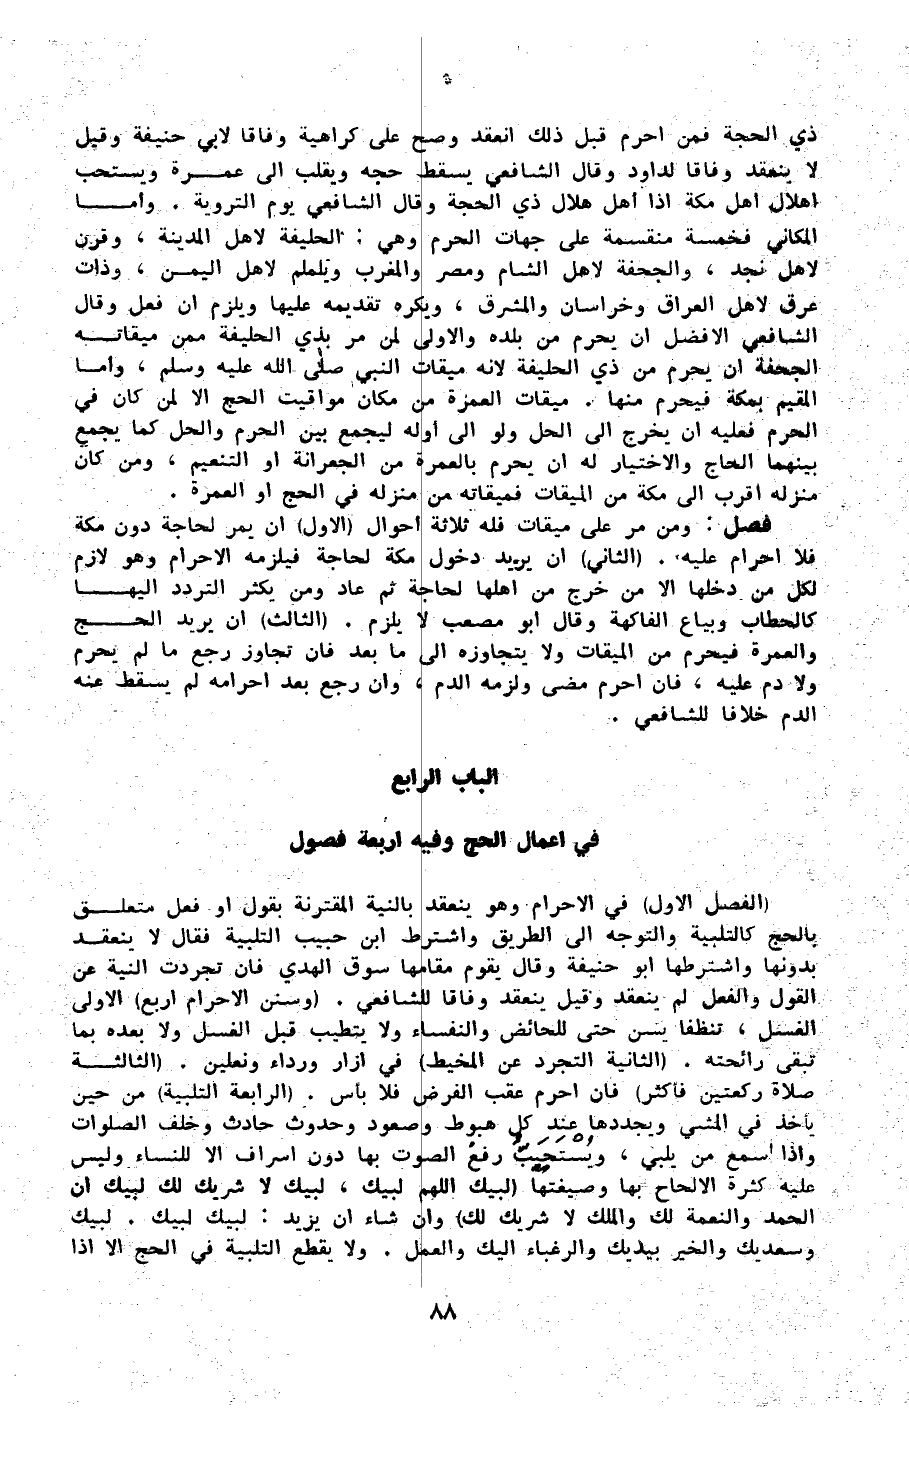 ذي الحجة فمن احرم قبل ذلك انعقد وصح على كراهية وفاقا لابي حنيفة وقيل
لا ينعقد وفاقا لداود وقال الشافعي يسقط حجه ويقلب الى عمـــرة ويستحب
اهلال أهل مكة اذا أهل هلال ذي الحجة وقال الشافعي يوم التروية . وأمـــا
المكاني فخمسة منقسمة على جهات الحرم وهي : الحليفة لاهل المدينة ، وقرن
لاهل نجد ، والجحفة لاهل الشام ومصر والمغرب ويلملم لاهل اليمــن ، وذات
عرق لاهل العراق وخراسان والمشرق ، ويكره تقديمه عليها ويلزم ان فعل وقال
الشافعي الافضل ان يحرم من بلده والاولى لمن مر بذي الحليفة ممن ميقاتــه
الجحفة ان يحرم من ذي الحليفة لانه ميقات النبي صلى الله عليه وسلم ، وأمــا
المقيم بمكة فيحرم منها . ميقات العمرة من مكان مواقيت الحج الا لمن كان في
الحرم فعليه ان يخرج الى الحل ولو الى أوله ليجمع بين الحرم والحل كما يجمع
بينهما الحاج والاختيار له ان يحرم بالعمرة من الجعرانة او التنعيم ، ومن كان
منزله أقرب الى مكة من الميقات فميقاته من منزله في الحج او العمرة .
فصل : ومن مر على ميقات فله ثلاثة أحوال (الاول) ان يمر لحاجة دون مكة
فلا احرام عليه . (الثاني) ان يريد دخول مكة لحاجة فيلزمه الاحرام وهو لازم
لكل من دخلها الا من خرج من اهلها لحاجة ثم عاد ومن يكثر التردد اليهـــا
كالحطاب وبياع الفاكهة وقال ابو مصعب لا يلزم . (الثالث) ان يريد الحـــج
والعمرة فيحرم من الميقات ولا يتجاوزه الى ما بعد فان تجاوز رجع ما لم يحرم
ولا دم عليه ، فان احرم مضى ولزمه الدم ، وان رجع بعد احرامه لم يسقط عنه
الدم خلافا للشافعي .
الباب الرابع
في اعمال الحج وفيه اربعة فصول
(الفصل الاول) في الاحرام وهو ينعقد بالنية المقترنة بقول او فعل متعلــق
بالحج كالتلبية والتوجه الى الطريق واشترط ابن حبيب التلبية فقال لا ينعقــد
بدونها واشترطها ابو حنيفة وقال يقوم مقامها سوق الهدي فان تجردت النية عن
القول والفعل لم ينعقد وقيل ينعقد وفاقا للشافعي . (وسنن الاحرام اربع) الاولى
الغسل ، تنظفا يسن حتى للحائض والنفساء ولا يتطيب قبل الغسل ولا بعده بما
تبقى رائحته . (الثانية التجرد عن المخيط) في ازار ورداء ونعلين . (الثالثـــة
صلاة ركعتين فأكثر) فان احرم عقب الفرض فلا بأس . (الرابعة التلبية) من حين
يأخذ في المشي ويجددها عند كل هبوط وصعود وحدوث حادث وخلف الصلوات
واذا أسمع من يلبي ، ويُستحب رفع الصوت بها دون اسراف الا للنساء وليس
عليه كثرة الالحاح بها وصيغتها (لبيك اللهم لبيك ، لبيك لا شريك لك لبيك ان
الحمد والنعمة لك والملك لا شريك لك) وان شاء ان يزيد : لبيك لبيك . لبيك
وسعديك والخير بيديك والرغباء اليك والعمل . ولا يقطع التلبية في الحج الا اذا
٨٨